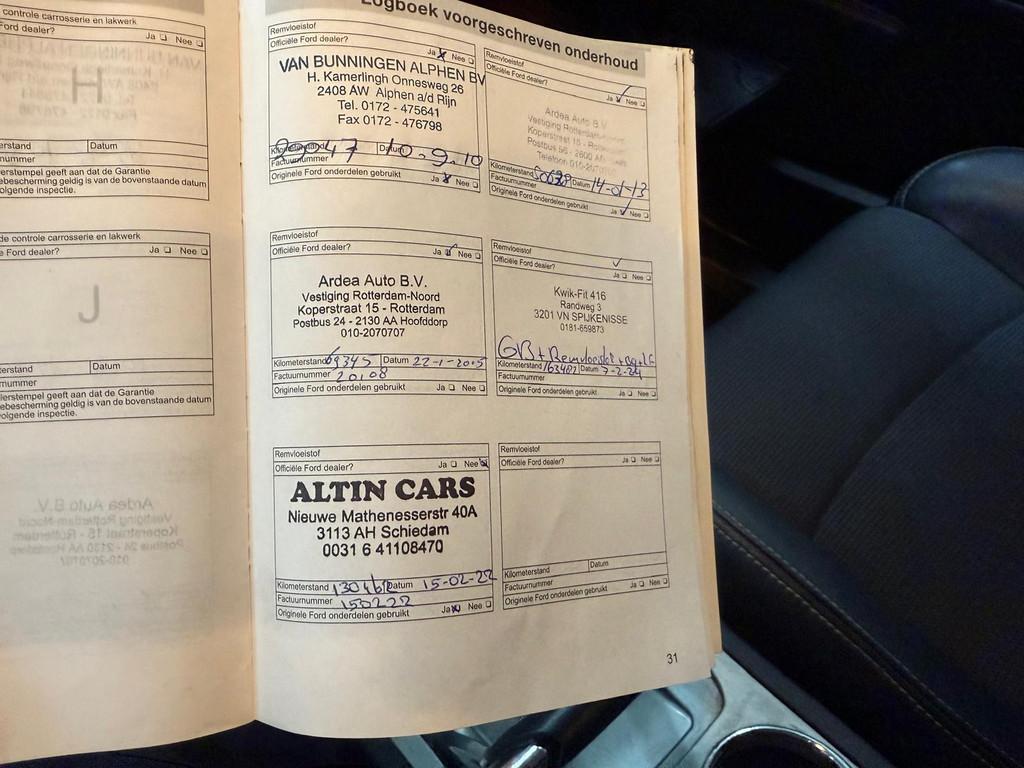 controle carrosserie en lakwerk
Ford dealer? Ja Nee
H
Datum
nummer
erstempel geeft aan dat de Garantie
ebescherming geldig is van de bovenstaande datum
olgende inspectie.
de controle carrosserie en lakwerk
Ford dealer? Ja Nee
J
Datum
nummer
erstempel geeft aan dat de Garantie
ebescherming geldig is van de bovenstaande datum
olgende inspectie.
Logboek voorgeschreven onderhoud
Remvloeistof
Officiële Ford dealer? Ja Nee
VAN BUNNINGEN ALPHEN BV
H. Kamerlingh Onnesweg 26
2408 AW Alphen a/d Rijn
Tel. 0172 - 475641
Fax 0172 - 476798
Kilometerstand Datum 10-9-10
Factuurnummer
Originele Ford onderdelen gebruikt Ja Nee
Remvloeistof
Officiële Ford dealer? Ja Nee
Ardea Auto B.V.
Vestiging Rotterdam-Noord
Koperstraat 15 - Rotterdam
Kilometerstand 50639 Datum 14-01-13
Factuurnummer
Originele Ford onderdelen gebruikt Ja Nee
Remvloeistof
Officiële Ford dealer? Ja Nee
Ardea Auto B.V.
Vestiging Rotterdam-Noord
Koperstraat 15 - Rotterdam
Postbus 24 - 2130 AA Hoofddorp
010-2070707
Kilometerstand 69345 Datum 22-1-2015
Factuurnummer 20108
Originele Ford onderdelen gebruikt Ja Nee
Remvloeistof
Officiële Ford dealer? Ja Nee
Kwik-Fit 416
Randweg 3
3201 VN SPIJKENISSE
0181-659873
GB + Remvloeistof +
Kilometerstand 163482 Datum 7-2-24
Factuurnummer
Originele Ford onderdelen gebruikt Ja Nee
Remvloeistof
Officiële Ford dealer? Ja Nee
ALTIN CARS
Nieuwe Mathenesserstr 40A
3113 AH Schiedam
0031 6 41108470
Kilometerstand 130462 Datum 15-02-22
Factuurnummer 150222
Originele Ford onderdelen gebruikt Ja Nee
Remvloeistof
Officiële Ford dealer? Ja Nee
Kilometerstand Datum
Factuurnummer
Originele Ford onderdelen gebruikt Ja Nee
31